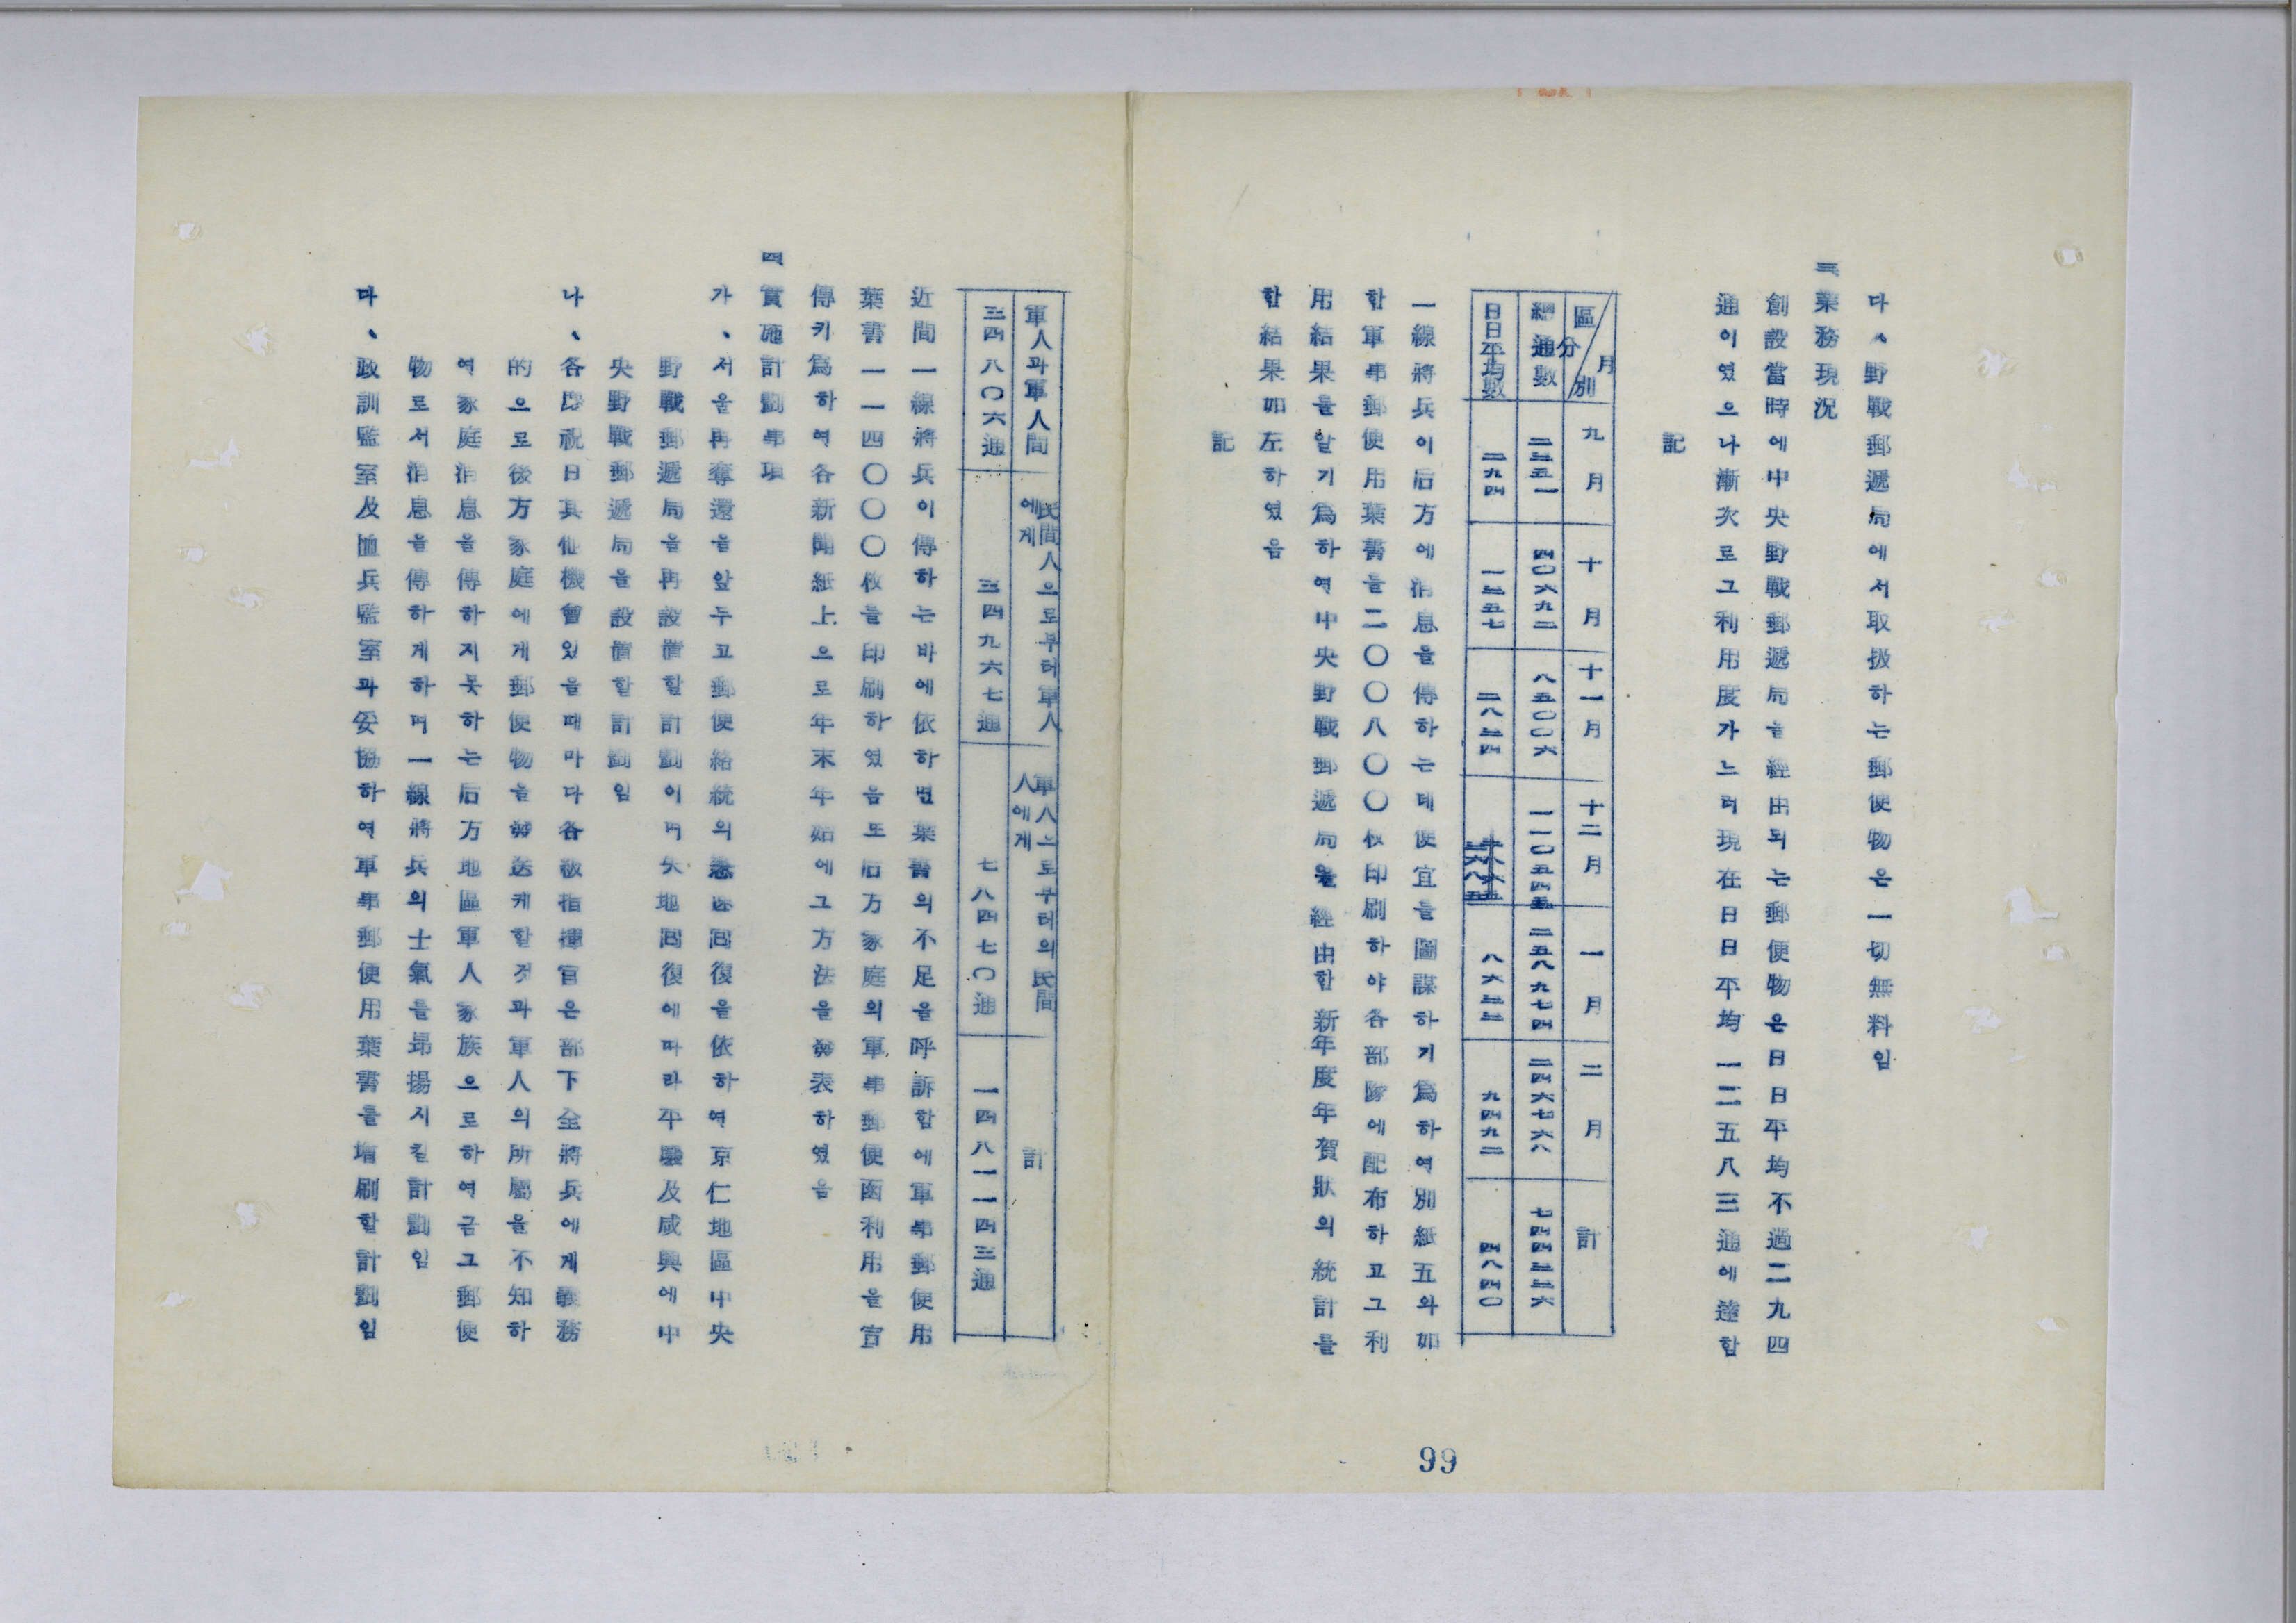 다、野戰郵遞局에서取扱하는郵便物은一切無料임
三、業務現況
創設當時에中央野戰郵遞局을經由되는郵便物은日日平均不過二九四
通이였으나漸次로그利用度가느러現在日日平均一二五八三通에達함
記
區分 月別 九月 十月 十一月 十二月 一月 二月 計
總通數 四〇六九二 八五〇〇六 二五八九七四 二四六七六八
日日平均數 二九四 九四九二 四八四〇
一線將兵이后方에消息을傳하는데便宜를圖謀하기爲하여別紙五와如
한軍事郵便用葉書를二〇〇八〇〇枚印刷하야各部隊에配布하고그利
用結果를알기爲하여中央野戰郵遞局을經由한新年度年賀狀의統計를
한結果如左하였음
記
軍人과軍人間 民間人으로부터軍人에게 軍人으로부터의民間人에게 計
三四八〇六通 三四九六七通 七八四七〇通 一四八一一四三通
近間一線將兵이傳하는바에依하면葉書의不足을呼訴함에軍事郵便用
葉書一一四〇〇〇枚를印刷하였음또后方家庭의軍事郵便函利用을宣
傳키爲하여各新聞紙上으로年末年始에그方法을發表하였음
四、實施計劃事項
가、서울再奪還을앞두고郵便絡統의急速回復을依하여京仁地區中央
野戰郵遞局을再設置할計劃이며失地回復에따라平壤及咸興에中
央野戰郵遞局을設置할計劃임
나、各 祝日其他機會있을때마다各級指揮官은部下全將兵에게義務
的으로後方家庭에게郵便物을發送케할것과軍人의所屬을不知하
여家庭消息을傳하지못하는后方地區軍人家族으로하여금그郵便
物로서消息을傳하게하며一線將兵의士氣를昻揚시킬計劃임
다、政訓監室及恤兵監室과妥協하여軍事郵便用葉書를增刷할計劃임
99